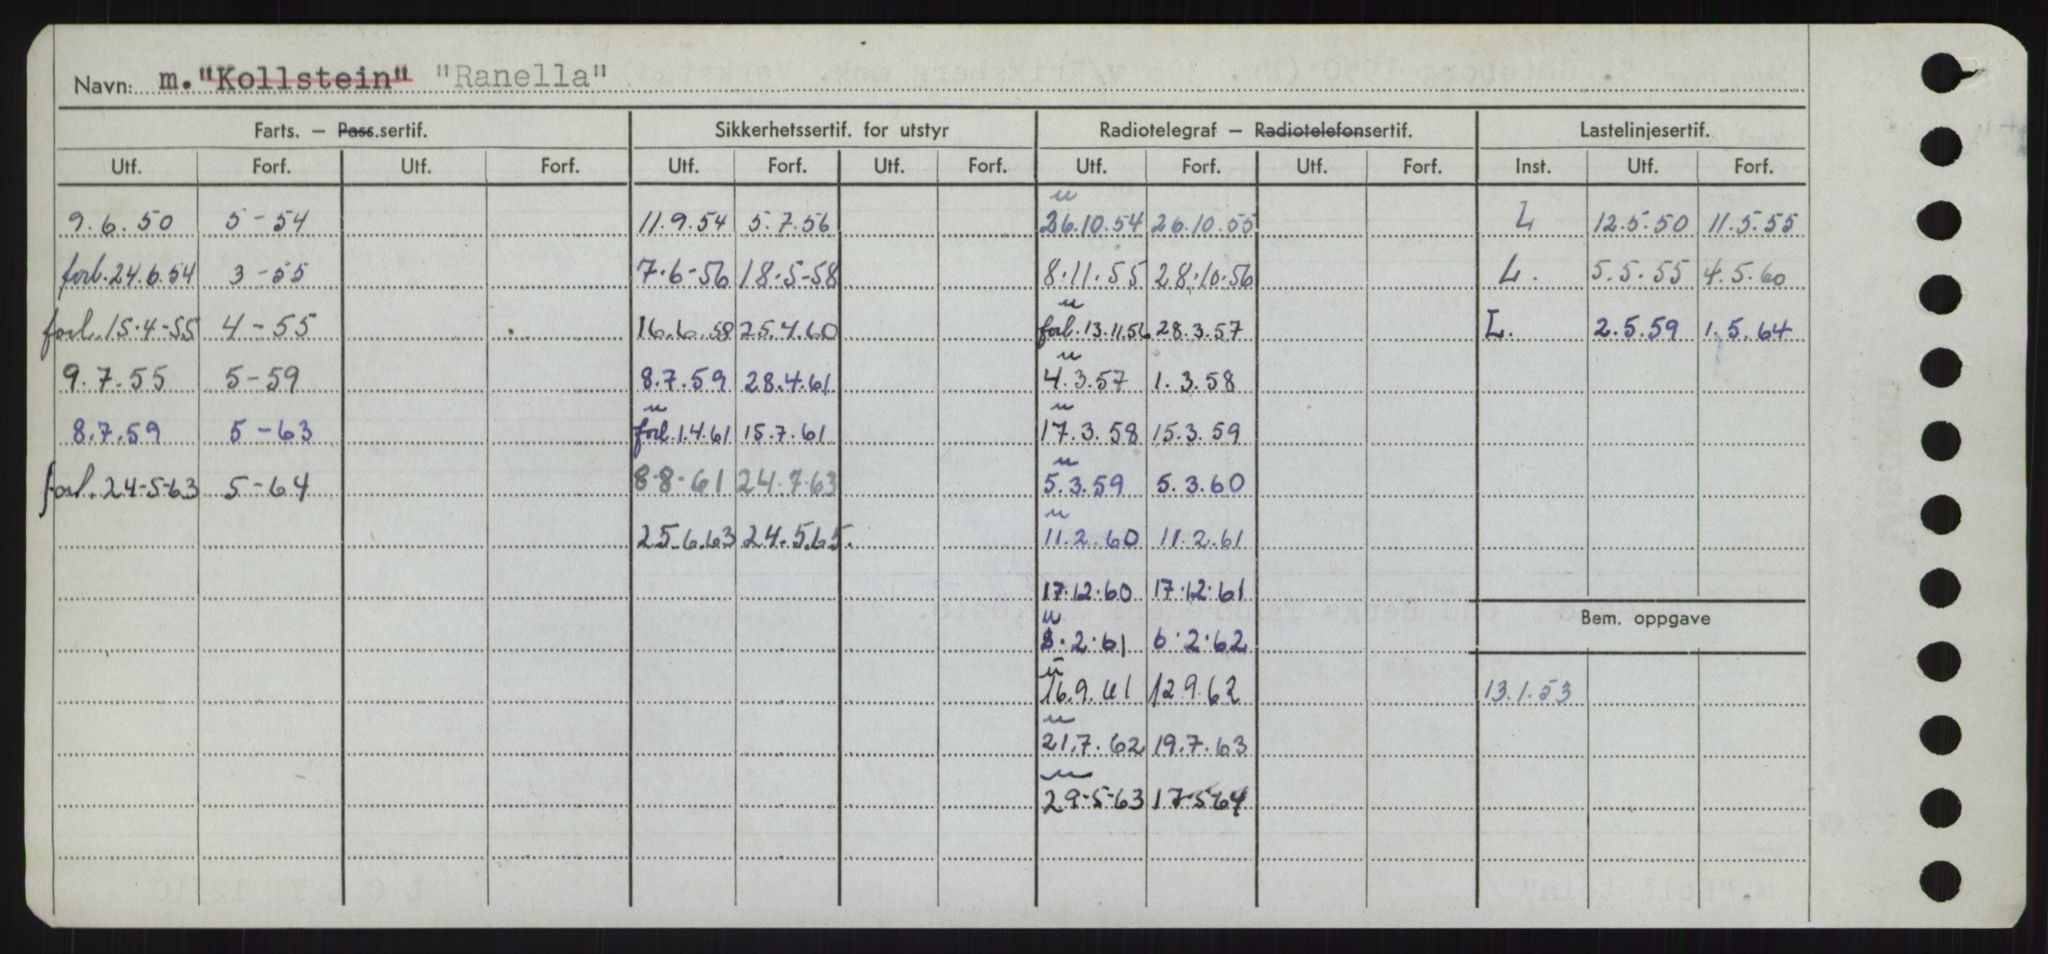 Navn: m. "Kollstein" "Ranella"
Farts. – Pass.sertif. Sikkerhetssertif. for utstyr Radiotelegraf – Radiotelefonsertif. Lastelinjesertif.
Utf. Forf. Utf. Forf. Utf. Forf. Utf. Forf. Utf. Forf. Utf. Forf. Inst. Utf. Forf.
u
9.6.50 5-54 11.9.54 5.7.56 26.10.54 26.10.55 L 12.5.50 11.5.55
forl. 24.6.54 3-55 7.6-56 18.5-58 8.11.55 28.10.56 L. 5.5.55 4.5.60
u
forl. 15.4-55 4-55 16.6.58 25.4.60 forl. 13.11.56 28.3.57 L. 2.5.59 1.5.64
u
9.7.55 5-59 8.7.59 28.4.61 4.3.57 1.3.58
u u
8.7.59 5-63 forl. 1.4.61 15.7.61 17.3.58 15.3.59
u
forl. 24-5-63 5-64 8-8-61 24.7.63 5.3.59 5.3.60
u
25.6.63 24.5.65. 11.2.60 11.2.61
17.12.60 17.12.61
Bem. oppgave
u
8.2.61 6.2.62
u
16.9.61 12.9.62 13.1.53
u
21.7.62 19.7.63
u
29-5-63 17-5-64